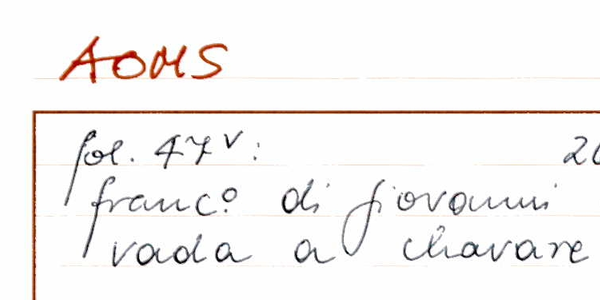 AOMS
fol. 47v: 20
franc.o di giovanni
vada a chavare